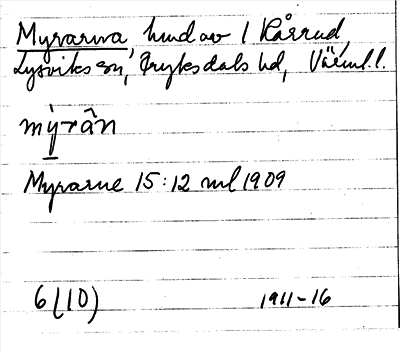 Myrarna, hmd av 1 Kårrud,
Lysviks sn, Fryksdals hd, Värml.l.
mỳrân
Myrarne 15:12 rul 1909
6(10) 1911-16